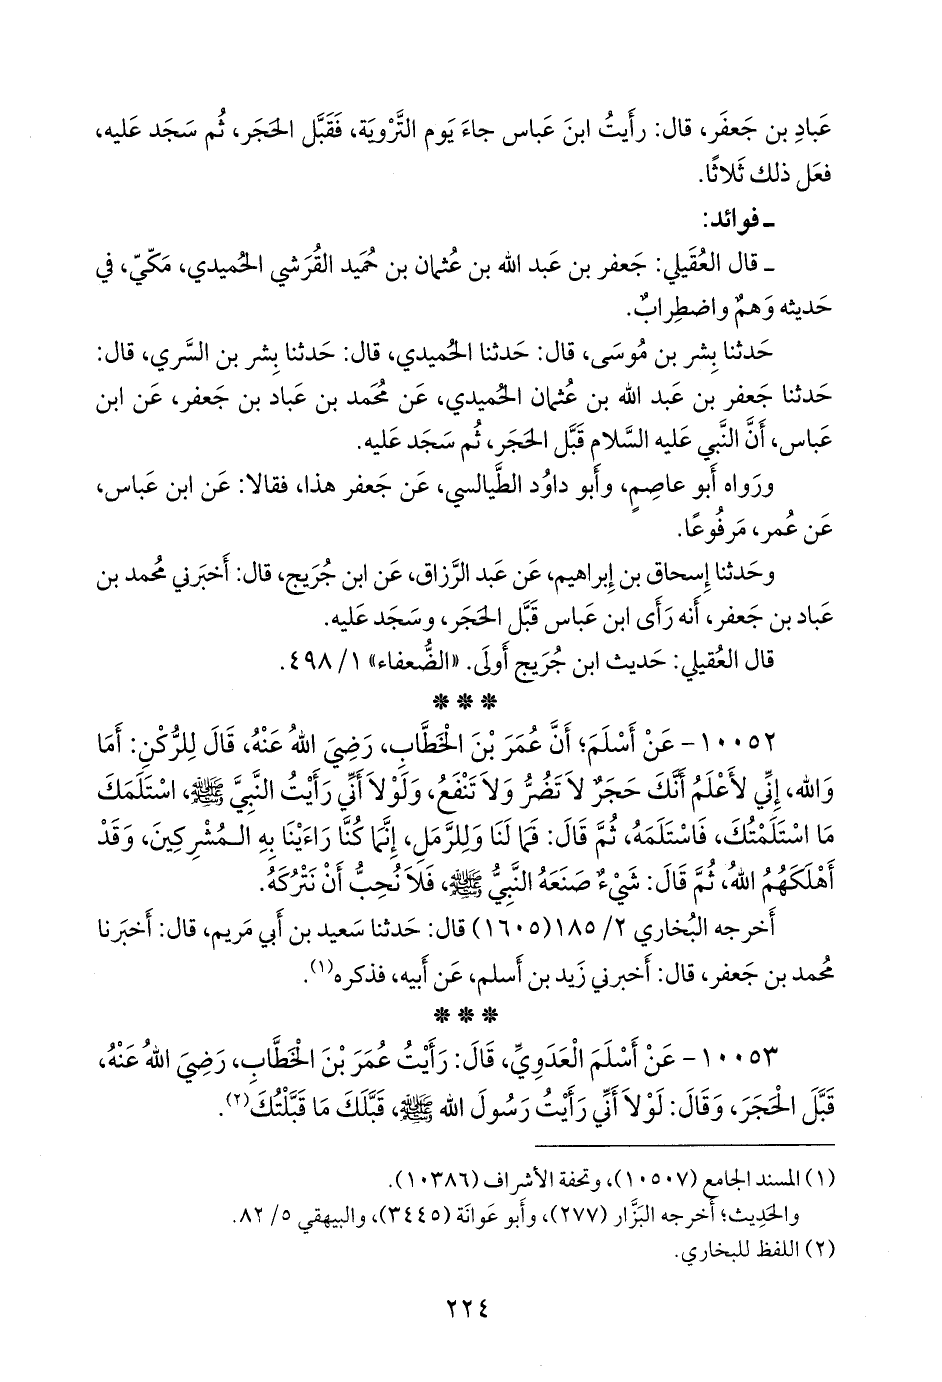 عَبادِ بن جَعفَر، قال: رأَيتُ ابنَ عَباس جاءَ يَوم التَّرْوِيَة، فَقَبَّل الحَجَر، ثُم سَجَد عَليه،
فعَل ذلك ثَلاثًا.
ـ فوائد:
ـ قال العُقَيلي: جَعفر بن عَبد الله بن عُثمان بن حُميد القُرَشي الحُميدي، مَكّيّ، في
حَديثه وَهمٌ واضطِرابٌ.
حَدثنا بِشر بن مُوسَى، قال: حَدثنا الحُميدي، قال: حَدثنا بِشر بن السَّري، قال:
حَدثنا جَعفر بن عَبد الله بن عُثمان الحُميدي، عَن مُحمد بن عَباد بن جَعفر، عَن ابن
عَباس، أَنَّ النَّبي عَليه السَّلام قَبَّل الحَجَر، ثُم سَجَد عَليه.
ورَواه أَبو عاصِمٍ، وأَبو داوُد الطَّيالسي، عَن جَعفر هذا، فقالا: عَن ابن عَباس،
عَن عُمر، مَرفُوعًا.
وحَدثنا إِسحاق بن إِبراهيم، عَن عَبد الرَّزاق، عَن ابن جُرَيج، قال: أَخبَرني مُحمد بن
عَباد بن جَعفر، أَنه رَأَى ابن عَباس قَبَّل الحَجَر، وسَجَد عَليه.
قال العُقيلي: حَديث ابن جُرَيج أَولَى. «الضُّعفاء» ١/ ٤٩٨.
* * *
١٠٠٥٢ - عَنْ أَسْلَمَ؛ أَنَّ عُمَرَ بْنَ الْخَطَّابِ، رَضِيَ اللهُ عَنْهُ، قَالَ لِلرُّكْنِ: أَمَا
وَالله، إِنِّي لأَعْلَمُ أَنَّكَ حَجَرٌ لاَ تَضُرُّ وَلاَ تَنْفَعُ، وَلَوْلاَ أَنِّي رَأَيْتُ النَّبِيَّ ﷺ، اسْتَلَمَكَ
مَا اسْتَلَمْتُكَ، فَاسْتَلَمَهُ، ثُمَّ قَالَ: فَمَا لَنَا وَلِلرَّمَلِ، إِنَّمَا كُنَّا رَاءَيْنَا بِهِ الـمُشْرِكِينَ، وَقَدْ
أَهْلَكَهُمُ اللهُ، ثُمَّ قَالَ: شَيْءٌ صَنَعَهُ النَّبِيُّ ﷺ، فَلاَ نُحِبُّ أَنْ نَتْرُكَهُ.
أَخرجه البُخاري ٢/ ١٨٥(١٦٠٥) قال: حَدثنا سَعيد بن أَبي مَريم، قال: أَخبَرنا
مُحمد بن جَعفر، قال: أَخبرني زَيد بن أَسلم، عَن أَبيه، فذكره(١).
* * *
١٠٠٥٣ - عَنْ أَسْلَمَ الْعَدَوِيِّ، قَالَ: رَأَيْتُ عُمَرَ بْنَ الْخَطَّابِ، رَضِيَ اللهُ عَنْهُ،
قَبَّلَ الْحَجَرَ، وَقَالَ: لَوْلاَ أَنِّي رَأَيْتُ رَسُولَ الله ﷺ، قَبَّلَكَ مَا قَبَّلْتُكَ(٢).
(١) المسند الجامع (١٠٥٠٧)، وتحفة الأشراف (١٠٣٨٦).
والحَدِيث؛ أَخرجه البَزَّار (٢٧٧)، وأَبو عَوانَة (٣٤٤٥)، والبيهقي ٥/ ٨٢.
(٢) اللفظ للبخاري.
٢٢٤